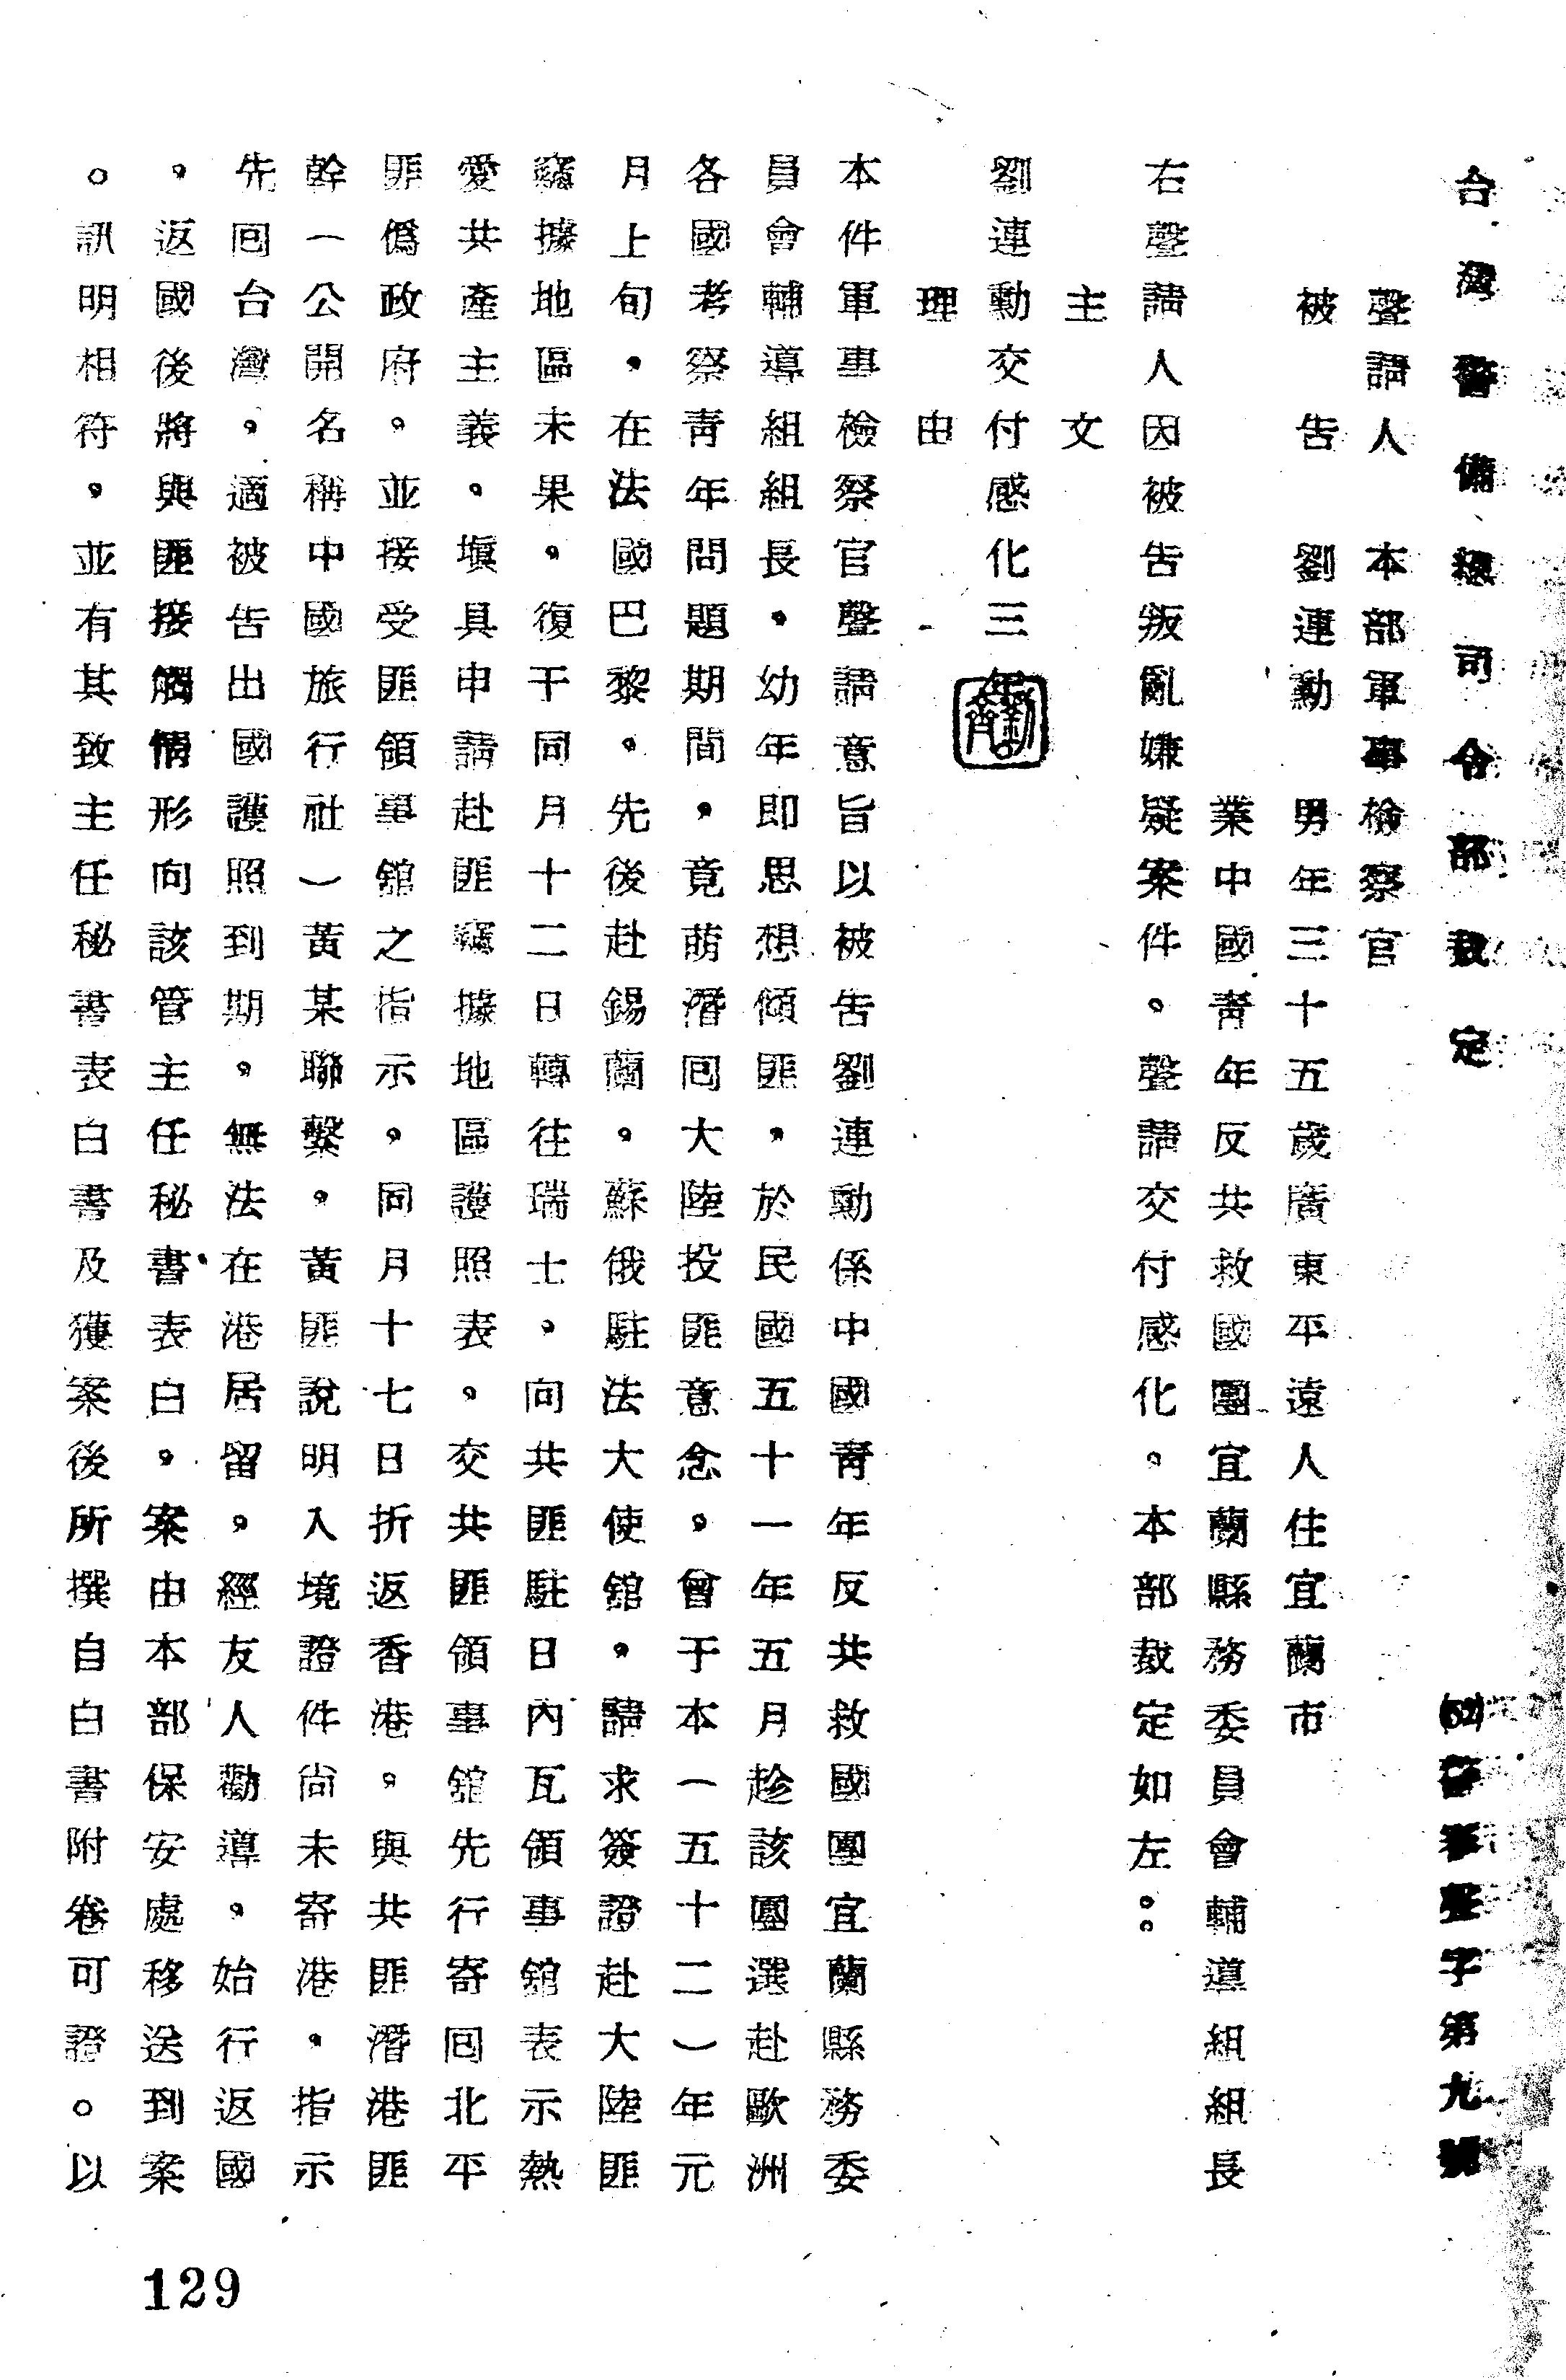 台灣警備總司令部裁定
(52)警審聲字第九號
聲請人　本部軍事檢察官
被告　劉連動　男年三十五歲廣東平遠人住宜蘭市
業中國青年反共救國團宜蘭縣務委員會輔導組組長
右聲請人因被告叛亂嫌疑案件。聲請交付感化。本部裁定如左：
主文
劉連動交付感化三年
理由
本件軍事檢察官聲請意旨以被告劉連動係中國青年反共救國團宜蘭縣務委
員會輔導組組長。幼年即思想傾匪，於民國五十一年五月趁該團選赴歐洲
各國考察青年問題期間，竟萌潛回大陸投匪意念。曾于本一五十二）年元
月上旬，在法國巴黎。先後赴錫蘭。蘇俄駐法大使舘，請求簽證赴大陸匪
竊據地區未果。復于同月十二日轉往瑞士，向共匪駐日內瓦領事舘表示熱
愛共產主義。塡具申請赴匪竊據地區護照表。交共匪領事舘先行寄回北平
匪僞政府。並接受匪領事舘之指示。同月十七日折返香港。與共匪潛港匪
幹一公開名稱中國旅行社）黃某聯繫。黃匪說明入境證件尚未寄港，指示
先回台灣。適被告出國護照到期。無法在港居留。經友人勸導。始行返國
，返國後將與匪接觸情形向該管主任秘書表白。案由本部保安處移送到案
。訊明相符，並有其致主任秘書表白書及獲案後所撰自白書附卷可證。以
129